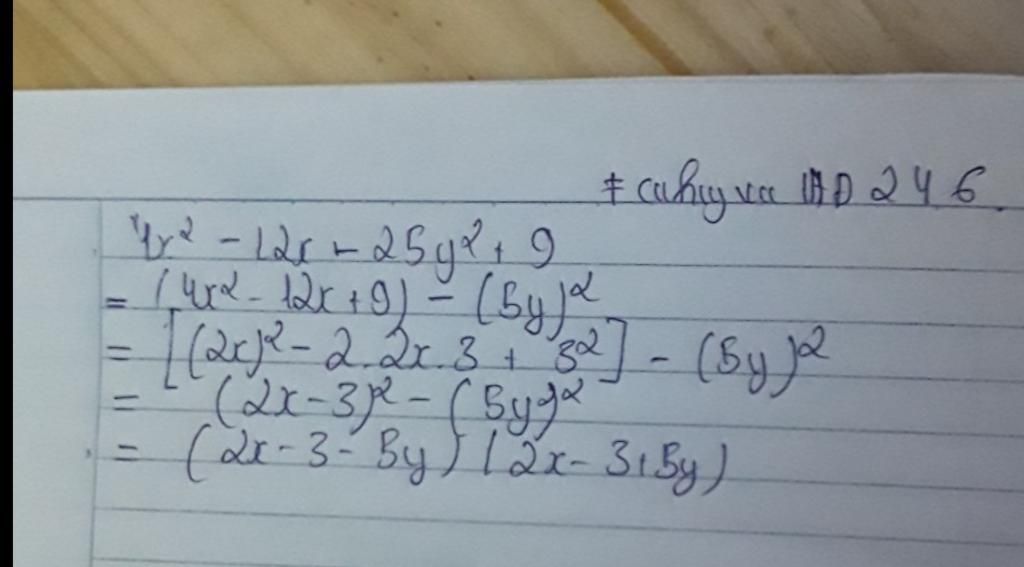 # cahuyva HD 246.
4x² - 12x - 25y² + 9
= (4x² - 12x + 9) - (5y)²
= [(2x)² - 2.2x.3 + 3²] - (5y)²
= (2x - 3)² - (5y)²
= (2x - 3 - 5y) (2x - 3 + 5y)